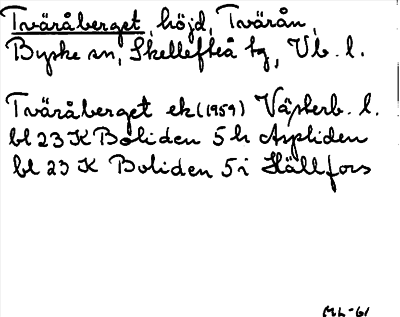 Tväråberget, höjd, Tvärån,
Byske sn, Skellefteå tg, Vb. l.
Tväråberget ek (1959) Västerb. l.
bl 23 K Boliden 5 h Aspliden
bl 23 K Boliden 5 i Hällfors